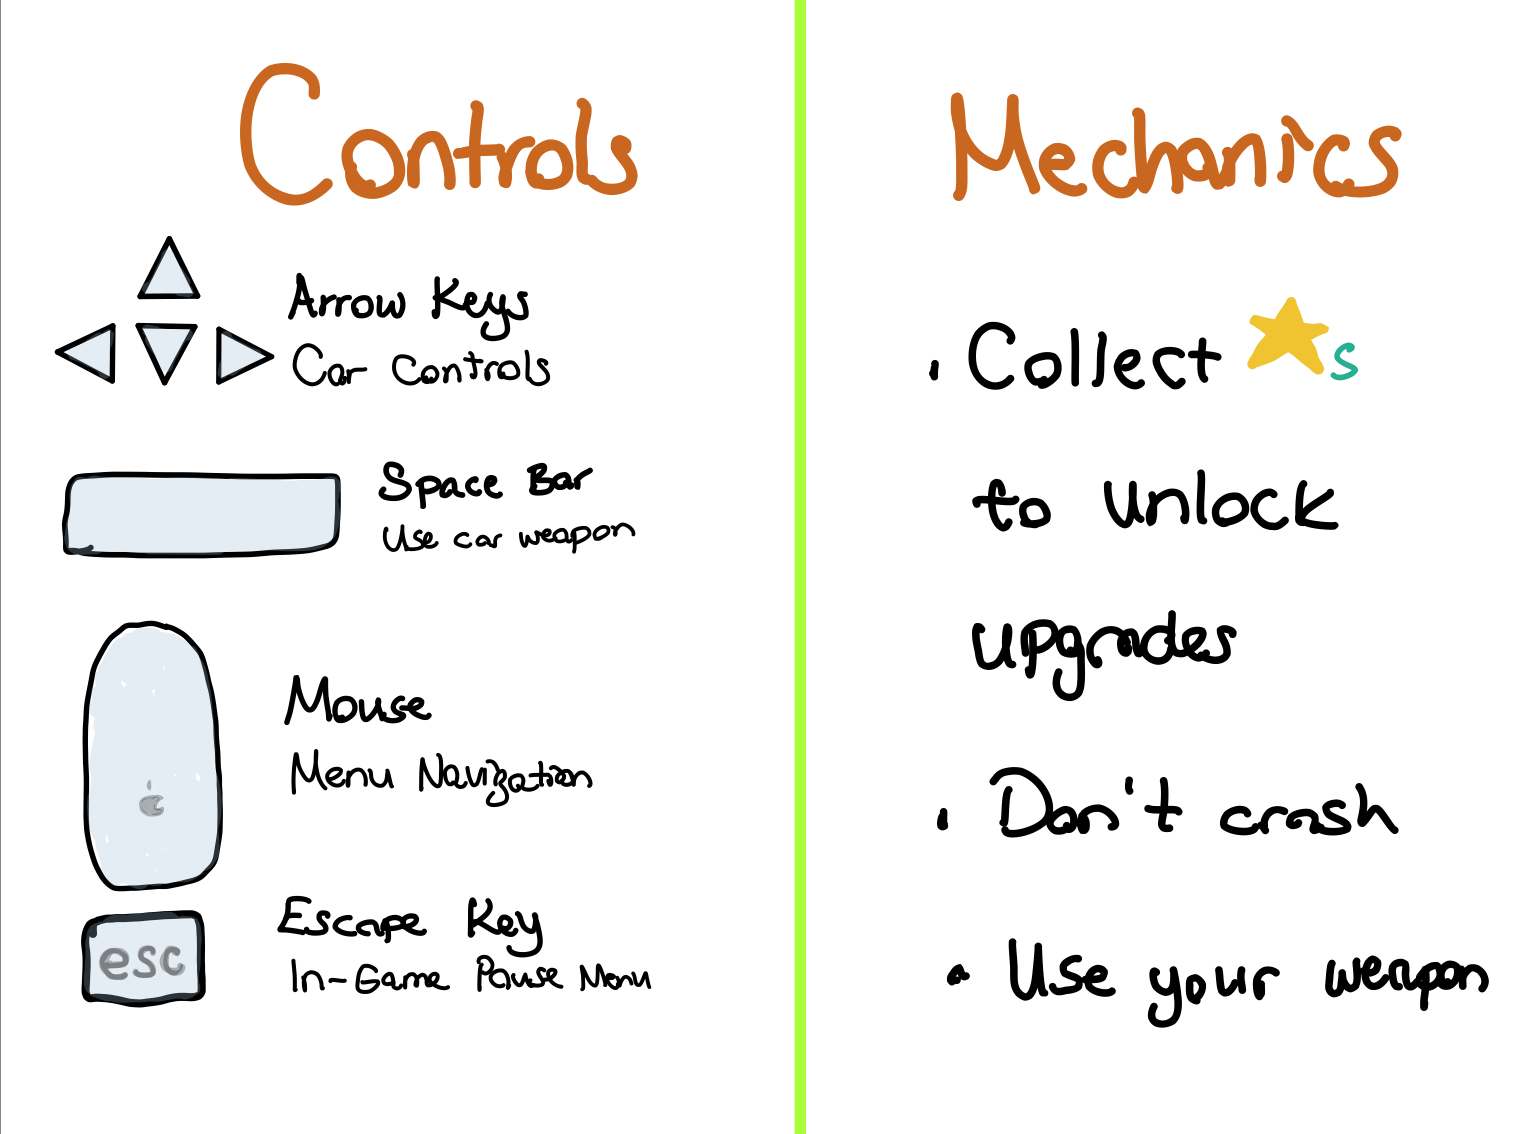 Controls
Arrow Keys
Car Controls
Space Bar
Use car weapon
Mouse
Menu Navigation
esc
Escape Key
In-Game Pause Menu
Mechanics
• Collect ★s
to unlock
upgrades
• Don't crash
• Use your weapon